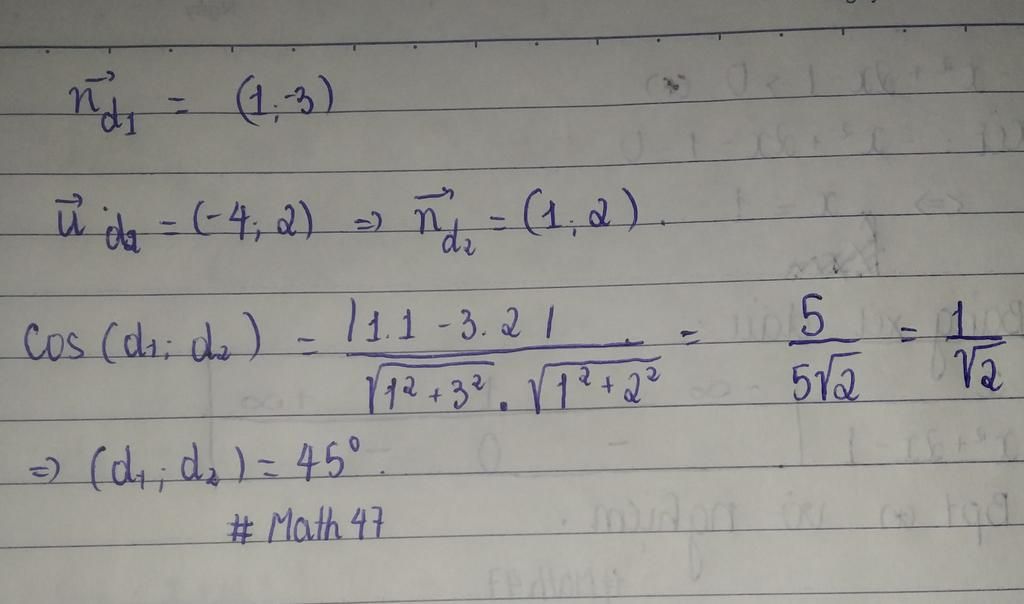 n⃗_d₁ = (1;-3)
u⃗_d₂ = (-4; 2) => n⃗_d₂ = (1; 2).
cos (d₁; d₂) = |1.1 - 3.2| / (√(1² + 3²) . √(1² + 2²)) = 5 / (5√2) = 1 / √2
=> (d₁; d₂) = 45°.
# Math 47